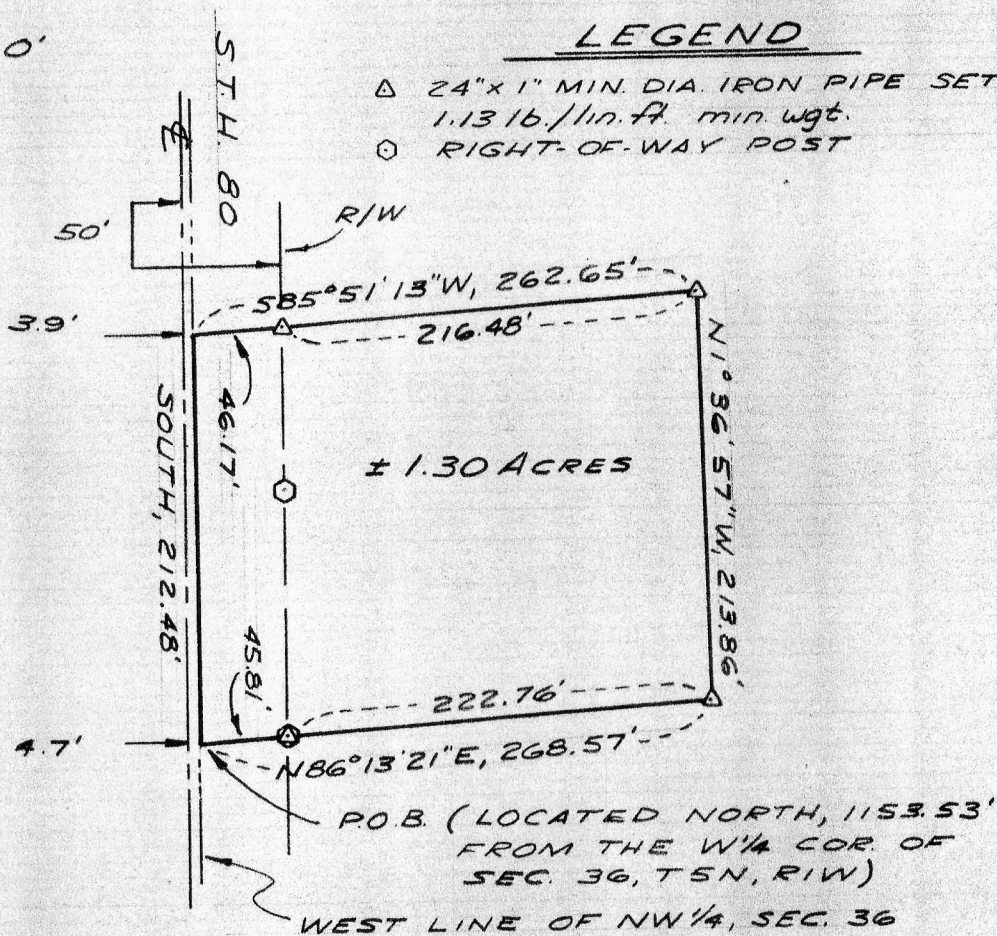 0'
LEGEND
24" x 1" MIN. DIA. IRON PIPE SET
1.13 lb./lin.ft. min. wgt.
RIGHT-OF-WAY POST
S.T.H. 80
℄
50'
R/W
S85°51'13"W, 262.65'
216.48'
3.9'
46.17'
SOUTH, 212.48'
± 1.30 ACRES
N1°36'57"W, 213.86'
45.81'
222.76'
4.7'
N86°13'21"E, 268.57'
P.O.B. (LOCATED NORTH, 1153.53'
FROM THE W¼ COR. OF
SEC. 36, T5N, R1W)
WEST LINE OF NW¼, SEC. 36